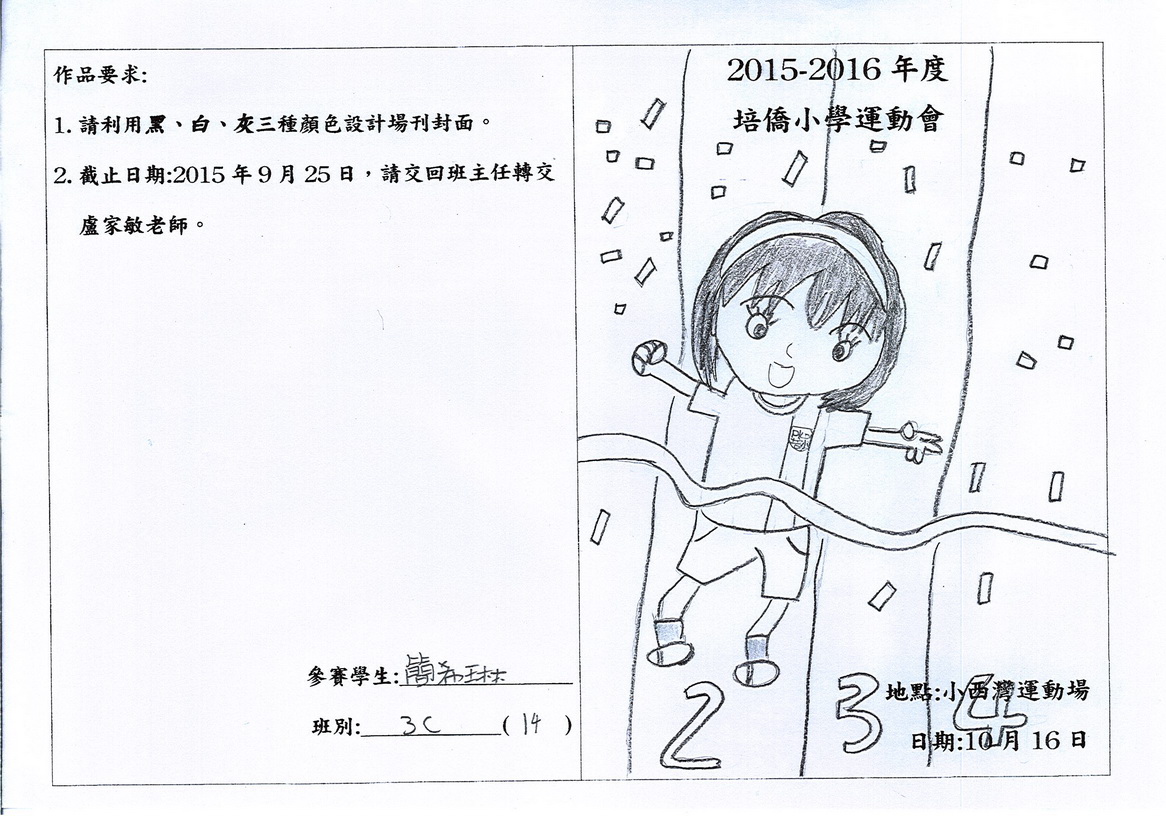 作品要求:
1. 請利用黑、白、灰三種顏色設計場刊封面。
2. 截止日期:2015 年 9 月 25 日，請交回班主任轉交
盧家敏老師。
參賽學生:簡希琳
班別: 3C (14)
2015-2016 年度
培僑小學運動會
2 3 4
地點:小西灣運動場
日期:10 月 16 日